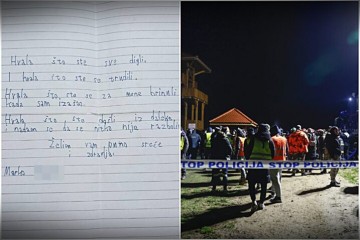 Hvala što ste svi digli.
I hvala što ste se trudili.
Hvala što, što se za mene brinuli
kada sam izašao.
Hvala što ste došli iz daleka,
i nadam se da se nitko nije razbolio.
Želim vam puno sreće
i zdravlja.
Marko
STOP POLICIJA STOP POLICIJA